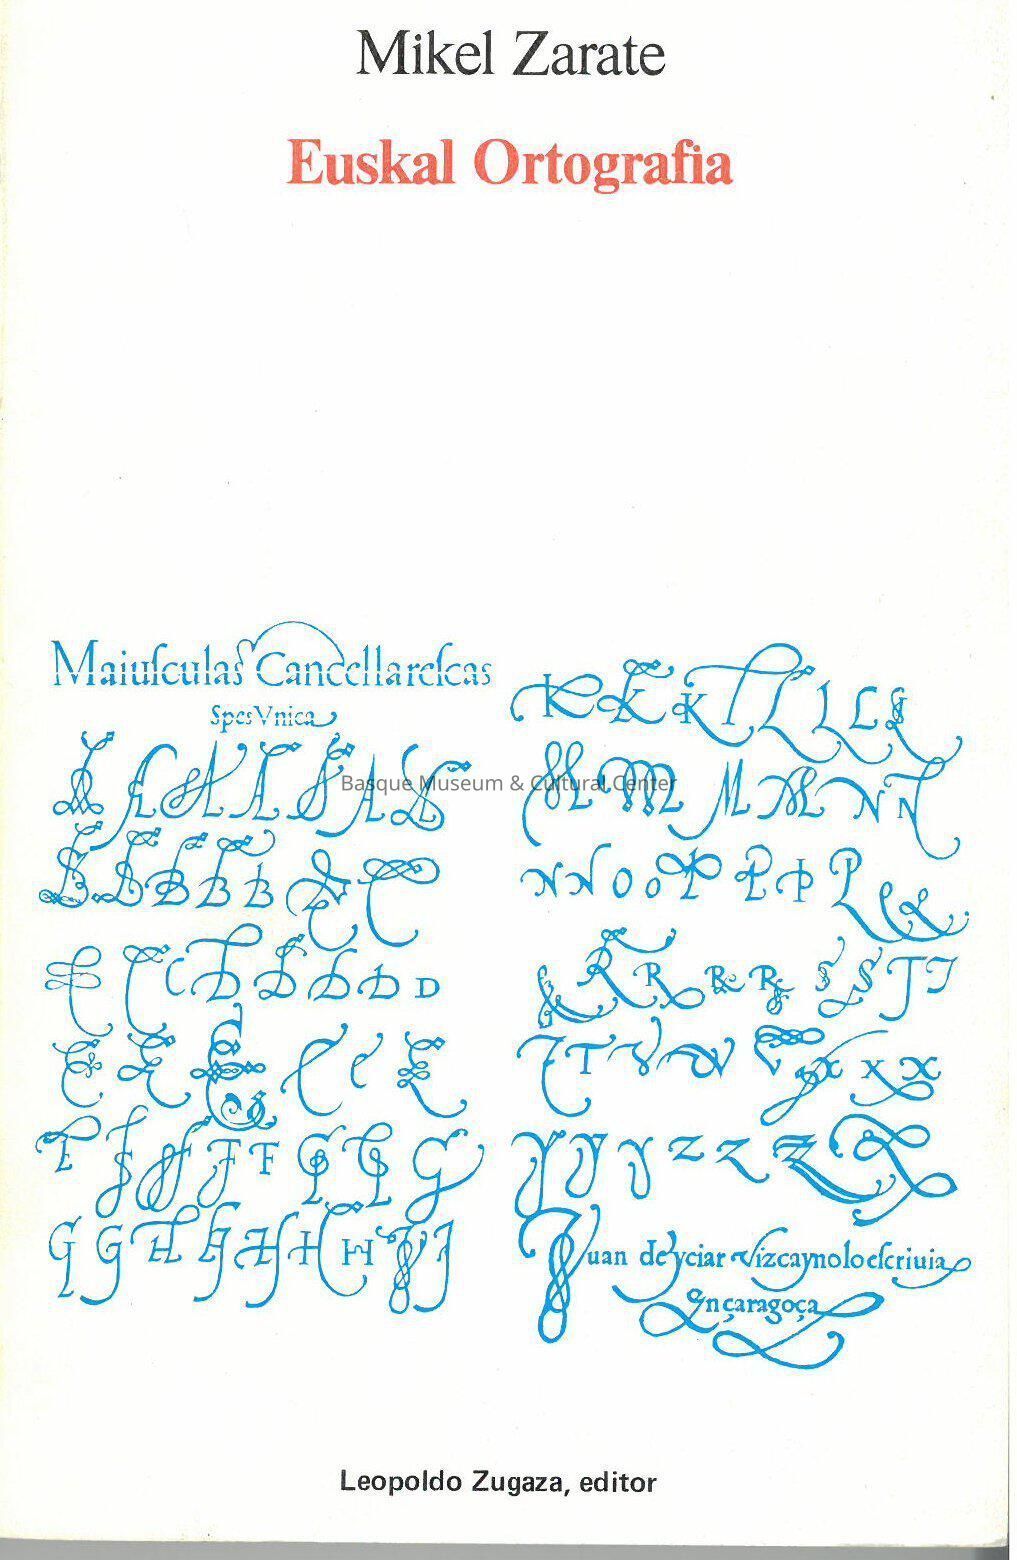 Mikel Zarate
Euskal Ortografia
Maiusculas Cancellarescas
Spes Vnica
Basque Museum & Cultural Center
K K K L L L L L
A A A A A A A
M M M M N N
B B B B B C C
N N O O P P P P Q Q
C C C D D D D D D
R R R R S S T T
E E E E E E
T T V V V X X X
F F F F F G G G
Y Y Y Z Z Z Z
G G H H H H H I I
Iuan de yciar vizcayno lo escriuia
En çaragoça
Leopoldo Zugaza, editor